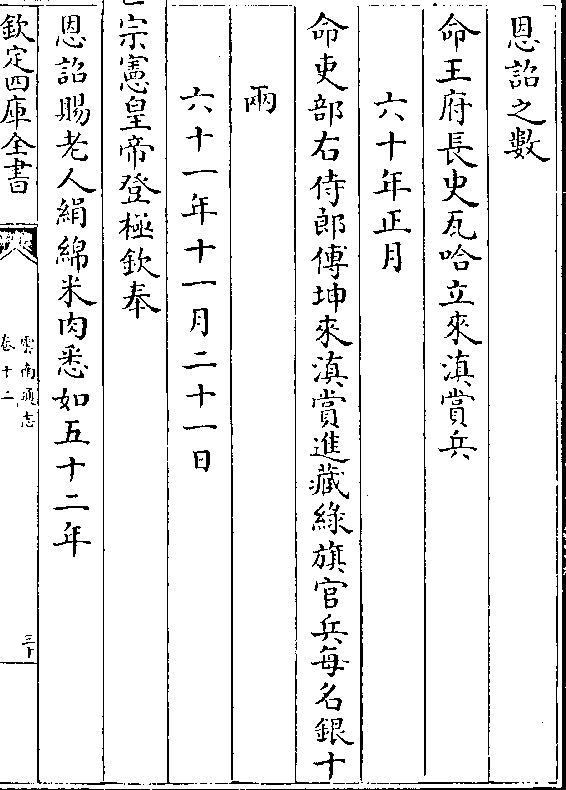 恩詔之數
命王府長史瓦哈立來滇賞兵
六十年正月
命吏部右侍郎傅坤來滇賞進藏綠旗官兵每名銀十
兩
六十一年十一月二十一日
宗憲皇帝登極欽奉
恩詔賜老人絹綿米肉悉如五十二年
欽定四庫全書
雲南通志
卷十二
三十